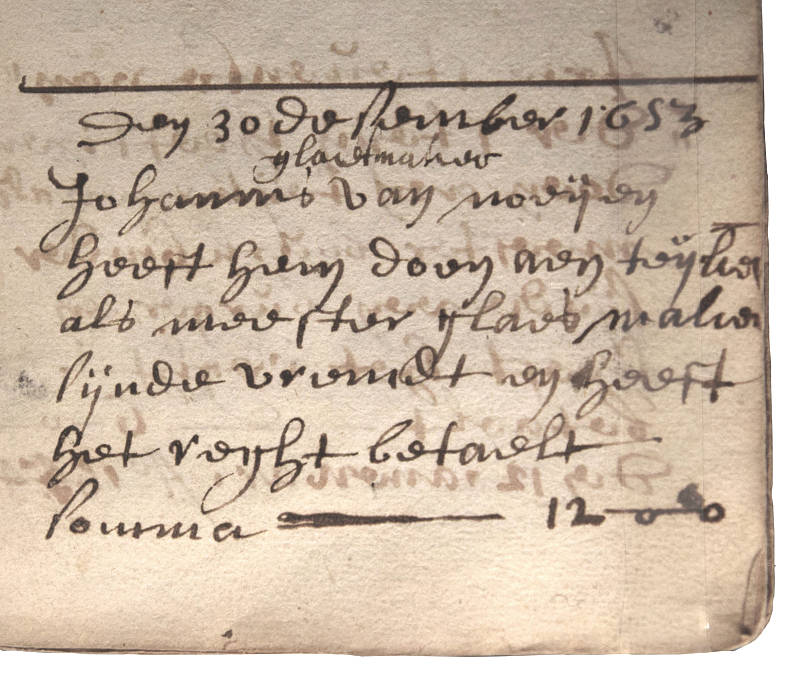 den 30 desember 1653
glaesmaker
Johannis van noeijen
heeft hem doen aen
als meester glaesmaker
sijnde vremdt en heeft
het reght betaelt
somma 12-0-0